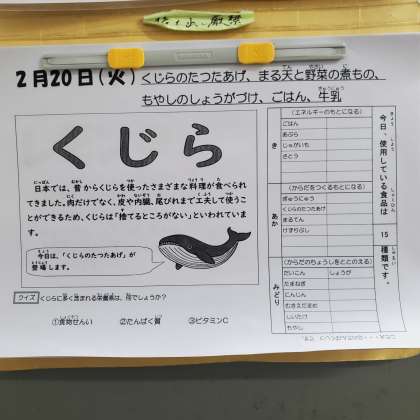 2月20日(火) くじらのたつたあげ、まる天と野菜の煮もの、
もやしのしょうがづけ、ごはん、牛乳
くじら
日本では、昔からくじらを使ったさまざまな料理が食べられ
てきました。肉だけでなく、皮や内臓、尾びれまで工夫して使うこ
とができるため、くじらは「捨てるところがない」といわれていま
す。
今日は、「くじらのたつたあげ」が
登場します。
クイズ くじらに多く含まれる栄養素は、何でしょうか?
①食物せんい ②たんぱく質 ③ビタミンC
今日、使用している食品は
15
種類です。
き
(エネルギーのもとになる)
ごはん
あぶら
じゃがいも
さとう
あか
(からだをつくるもとになる)
ぎゅうにゅう
くじらのたつたあげ
まるてん
けずりぶし
みどり
(からだのちょうしをととのえる)
だいこん しょうが
たまねぎ
にんじん
むきえだまめ
しいたけ
もやし